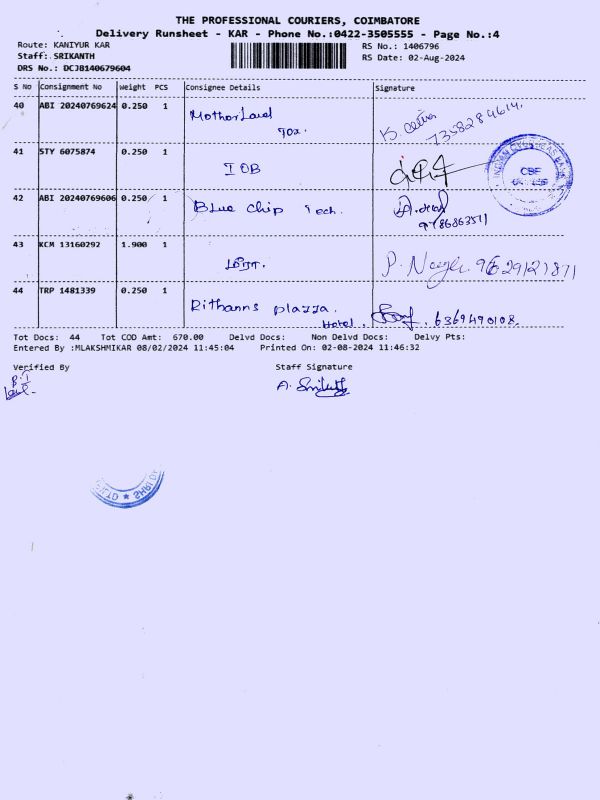 THE PROFESSIONAL COURIERS, COIMBATORE
Delivery Runsheet - KAR - Phone No.:0422-3505555 - Page No.:4
Route: KANIYUR KAR
RS No.: 1406796
Staff: SRIKANTH
RS Date: 02-Aug-2024
DRS No.: DCJB140679604
S No Consignment No Weight PCS Consignee Details Signature
40 ABI 20240769624 0.250 1 Mother Land
7358284614.
41 STY 6075874 0.250 1 IOB
INDIAN OVERSEAS BANK
42 ABI 20240769606 0.250 1 Blue Chip Tech.
9786863571
43 KCM 13160292 1.900 1 மீரா.
44 TRP 1481339 0.250 1 Rithanns plazza.
Hotel. 6369490108.
Tot Docs: 44 Tot COD Amt: 670.00 Delvd Docs: Non Delvd Docs: Delvy Pts:
Entered By :MLAKSHMIKAR 08/02/2024 11:45:04 Printed On: 02-08-2024 11:46:32
Verified By Staff Signature